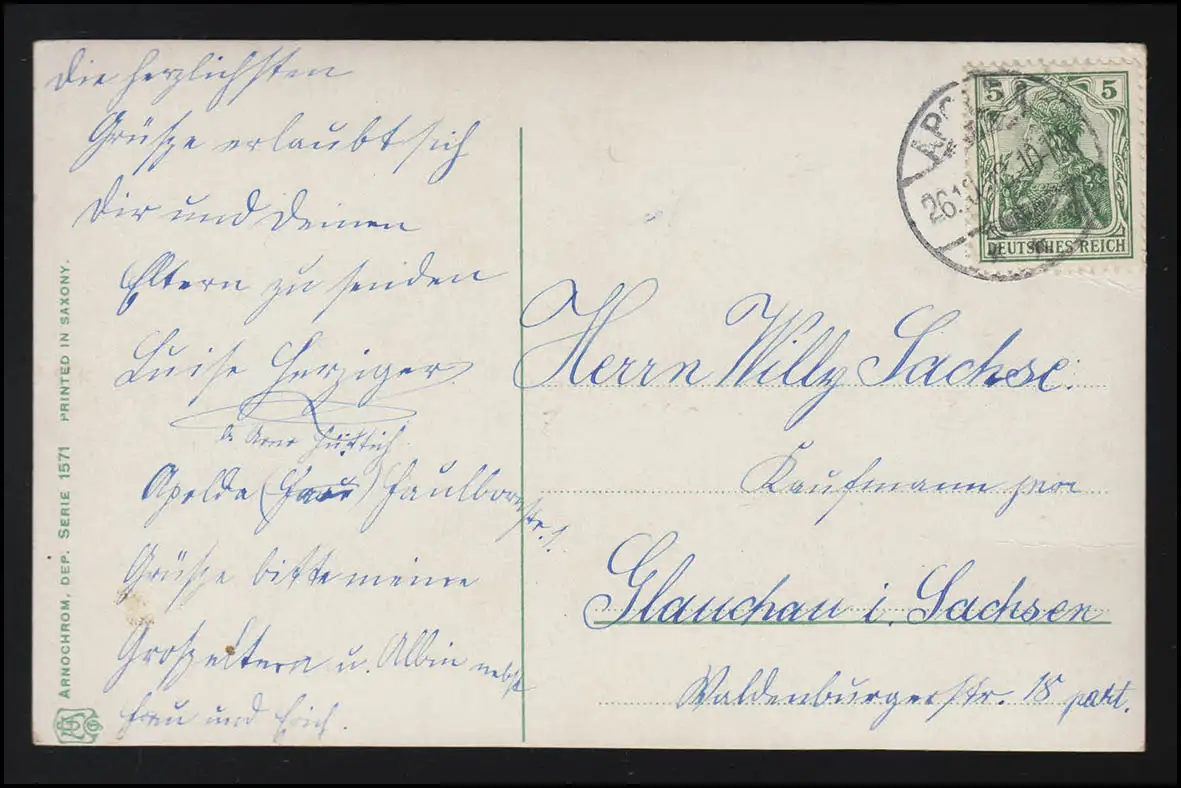 Die herzlichsten
Grüße erlaubt sich
Dir und Deinen
Eltern zu senden
Luise Herziger.
Apolda (Frau) Faulbornstr. 1.
Grüße bitte meine
Großeltern u. Albin nebst
Frau und Erich.
ARNOCHROM, DEP. SERIE 1571 PRINTED IN SAXONY.
APOLDA
5 5
DEUTSCHES REICH
Herrn Willy Sachse.
Kaufmann
Glauchau i. Sachsen
Waldenburgerstr. 18 part.